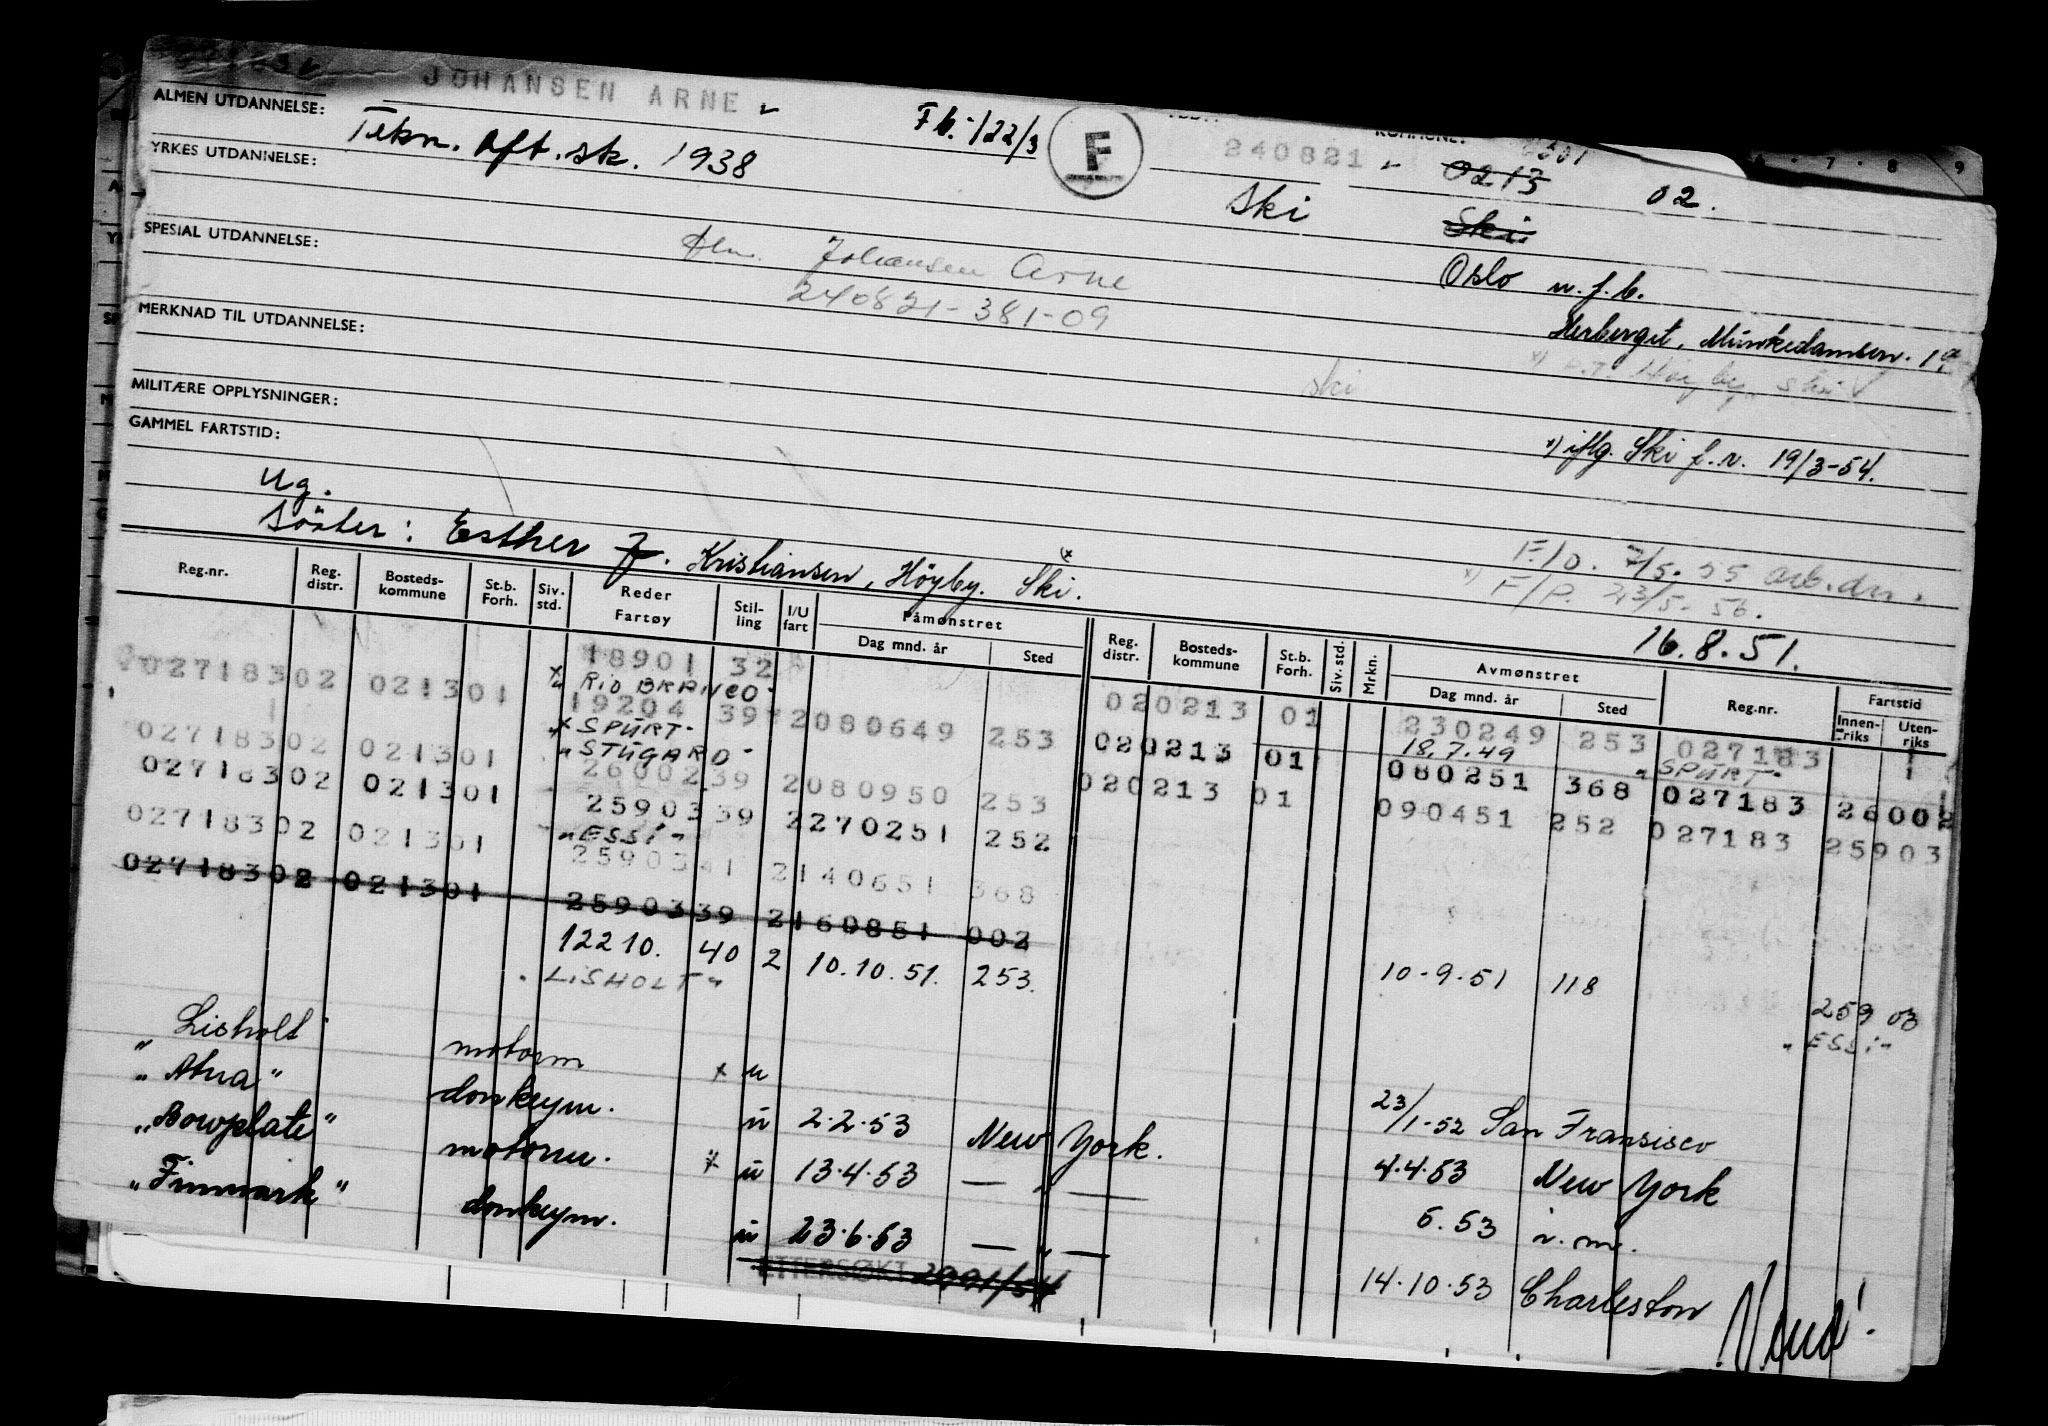 JOHANSEN ARNE
ALMEN UTDANNELSE:
Tekn. Aft. sk. 1938
Fb. 122/3
F
240821
0213
02.
YRKES UTDANNELSE:
Ski
Ski
SPESIAL UTDANNELSE:
Johansen Arne
240821-381-09
Oslo u.f.b.
Herberget, Munkedamsvn. 1
MERKNAD TIL UTDANNELSE:
Ski
Høyby, Ski
MILITÆRE OPPLYSNINGER:
x) iflg. Ski f.r. 19/3-54.
GAMMEL FARTSTID:
Ug.
Söster: Esther J. Kristiansen, Höyby. Ski.
F/O. 7/5-55
F/P. 23/5-56.
16.8.51.
Reg.nr. Reg. distr. Bosteds-kommune St.b. Forh. Siv. std. Reder Fartøy Stil-ling I/U fart Påmønstret Dag mnd. år Sted Reg. distr. Bosteds-kommune St.b. Forh. Siv. std. Mrkn. Avmønstret Dag mnd. år Sted Reg.nr. Fartstid Innen-riks Uten-riks
18901 32
02718302 021301 "RIO BRANCO"
19204 39 2080649 253 020213 01 230249 253 027183
"SPURT" 18.7.49 "SPURT"
02718302 021301 "STUGARD"
26002 39 2080950 253 020213 01 080251 368 027183 26002
02718302 021301 25903 39 2270251 252 020213 01 090451 252 027183 25903
"ESSI"
02718302 021301 25903 41 2140651 368
02718302 021301 25903 39 2160851 002
12210. 40 2 10.10.51. 253. 10-9-51 118 259 03
"LISHOLT" "ESSI"
"Lisholt" motorm x u 23/1-52 San Fransisco
"Atna" donkeym. u 2.2.53 New York. 4.4.53 New York
"Bowplate" motorm. x u 13.4.53 — " — 6.53 i.m.
"Finnmark" donkeym. u 23.6.53 — " — 14.10.53 Charleston
ETTERSØKT 2991/54